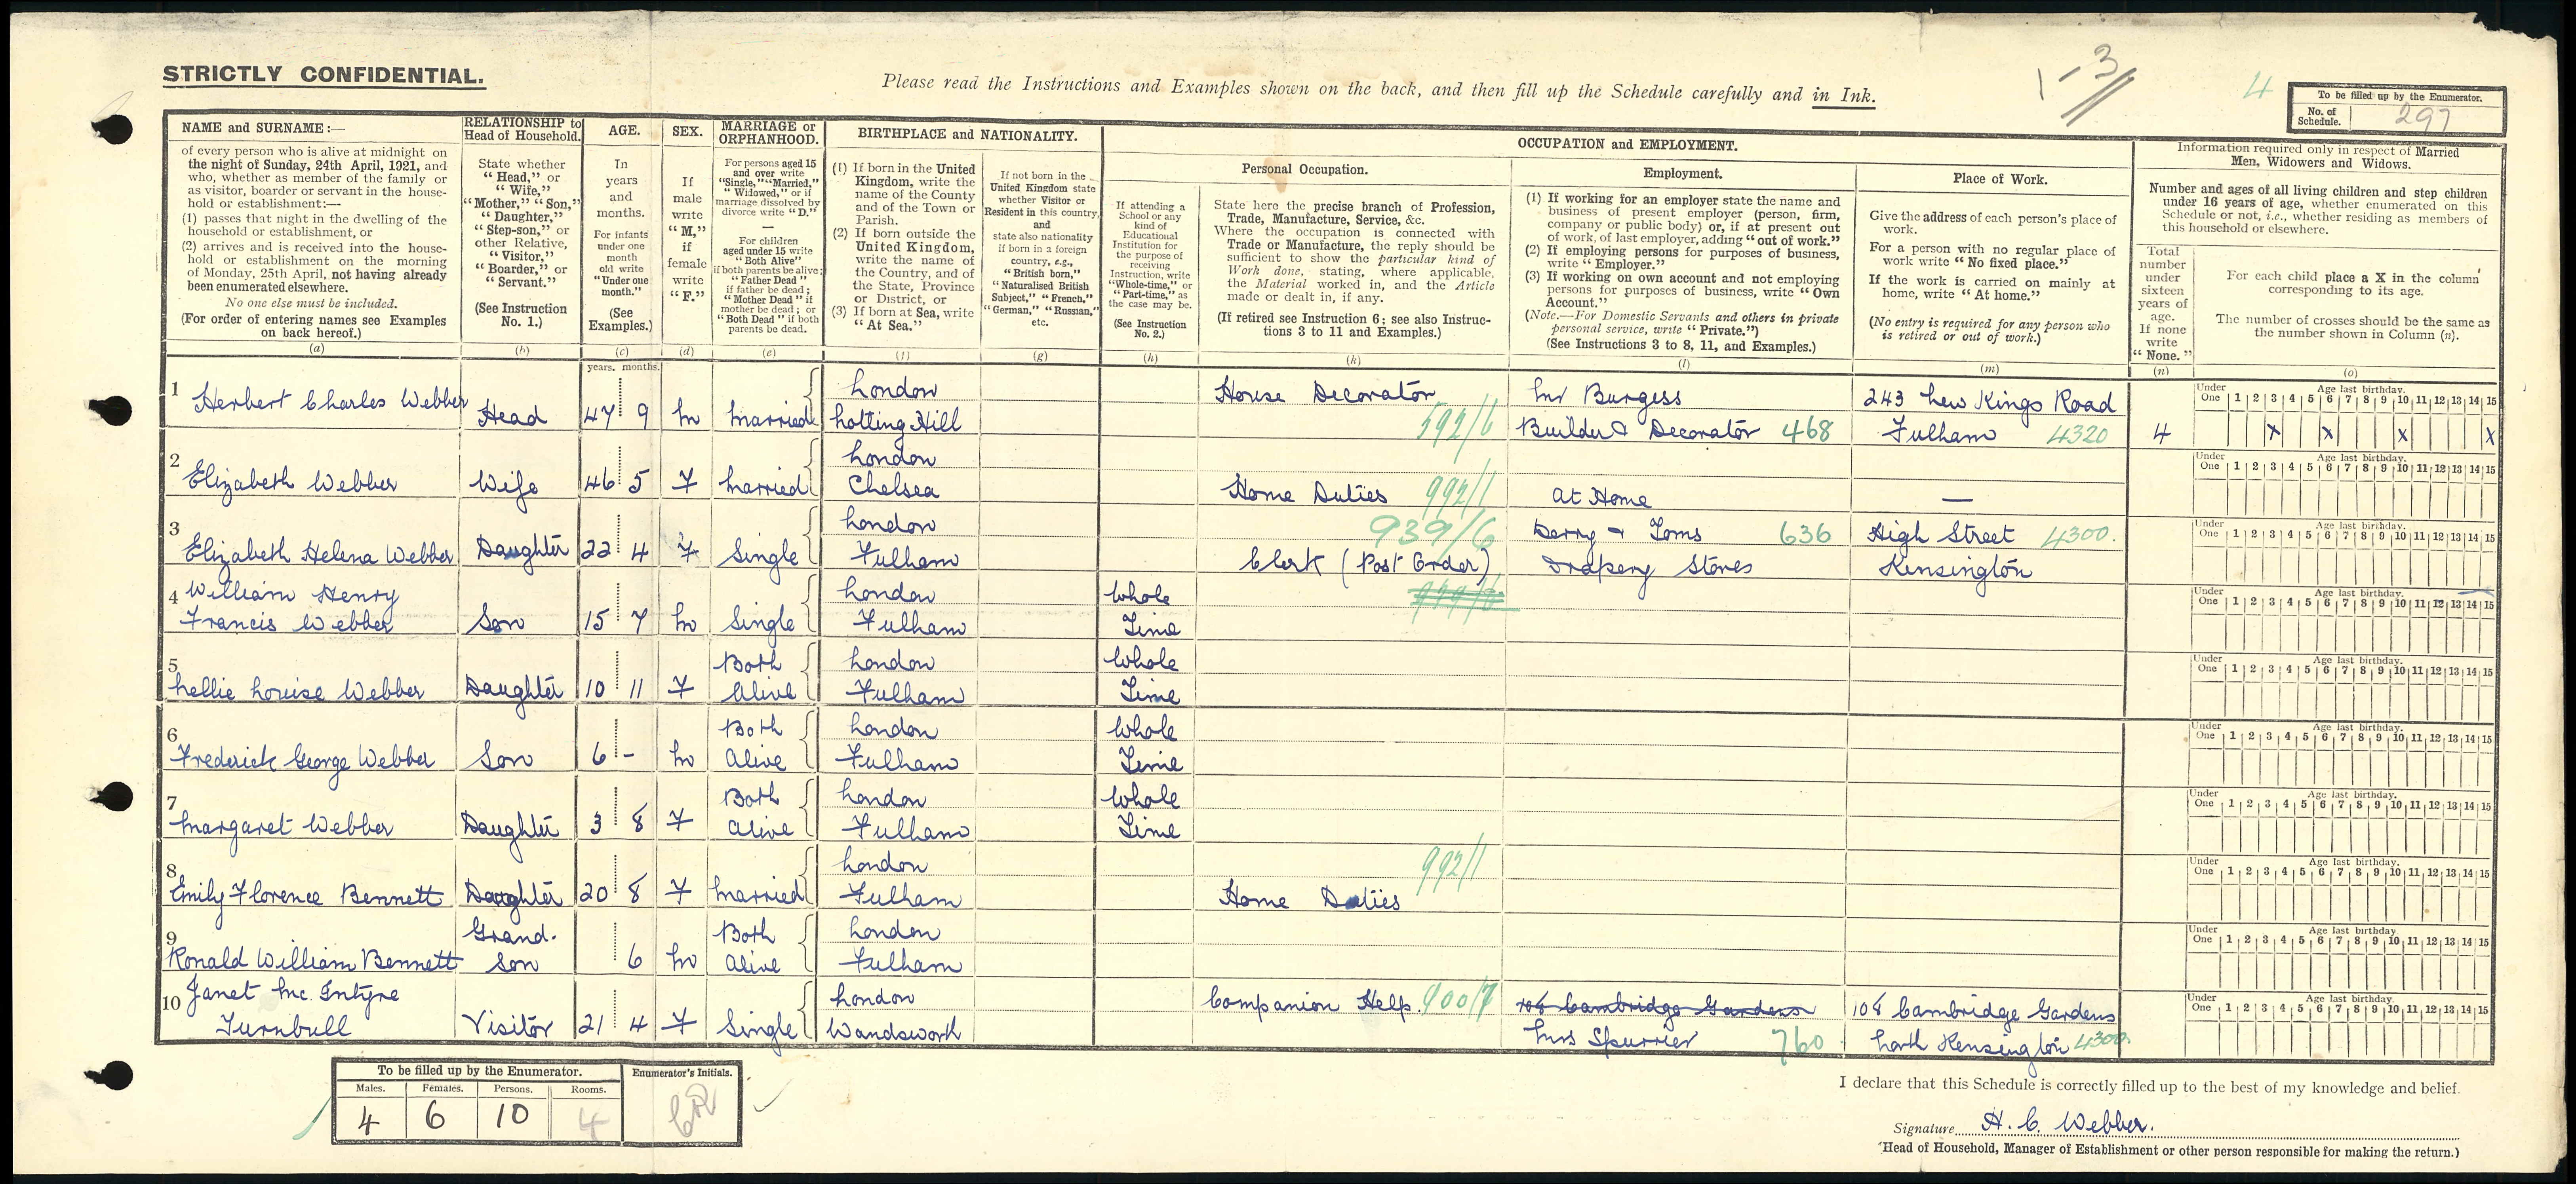 STRICTLY CONFIDENTIAL.
Please read the Instructions and Examples shown on the back, and then fill up the Schedule carefully and in Ink.
1-3
4
To be filled up by the Enumerator.
No. of Schedule. 297
NAME and SURNAME:—
of every person who is alive at midnight on
the night of Sunday, 24th April, 1921, and
who, whether as member of the family or
as visitor, boarder or servant in the house-
hold or establishment:—
(1) passes that night in the dwelling of the
household or establishment, or
(2) arrives and is received into the house-
hold or establishment on the morning
of Monday, 25th April, not having already
been enumerated elsewhere.
No one else must be included.
(For order of entering names see Examples
on back hereof.)
(a)
RELATIONSHIP to
Head of Household.
State whether
"Head," or
"Wife,"
"Mother," "Son,"
"Daughter,"
"Step-son," or
other Relative,
"Visitor,"
"Boarder," or
"Servant."
(See Instruction
No. 1.)
(b)
AGE.
In
years
and
months.
For infants
under one
month
old write
"Under one
month."
(See
Examples.)
(c)
years. months.
SEX.
If
male
write
"M,"
if
female
write
"F."
(d)
MARRIAGE or
ORPHANHOOD.
For persons aged 15
and over write
"Single," "Married,"
"Widowed," or if
marriage dissolved by
divorce write "D."
—
For children
aged under 15 write
"Both Alive"
if both parents be alive;
"Father Dead"
if father be dead;
"Mother Dead" if
mother be dead; or
"Both Dead" if both
parents be dead.
(e)
BIRTHPLACE and NATIONALITY.
(1) If born in the United
Kingdom, write the
name of the County
and of the Town or
Parish.
(2) If born outside the
United Kingdom,
write the name of
the Country, and of
the State, Province
or District, or
(3) If born at Sea, write
"At Sea."
(f)
If not born in the
United Kingdom state
whether Visitor or
Resident in this country,
and
state also nationality
if born in a foreign
country, e.g.,
"British born,"
"Naturalised British
Subject," "French,"
"German," "Russian,"
etc.
(g)
OCCUPATION and EMPLOYMENT.
If attending a
School or any
kind of
Educational
Institution for
the purpose of
receiving
Instruction, write
"Whole-time," or
"Part-time," as
the case may be.
(See Instruction
No. 2.)
(h)
Personal Occupation.
State here the precise branch of Profession,
Trade, Manufacture, Service, &c.
Where the occupation is connected with
Trade or Manufacture, the reply should be
sufficient to show the particular kind of
Work done, stating, where applicable,
the Material worked in, and the Article
made or dealt in, if any.
(If retired see Instruction 6; see also Instruc-
tions 3 to 11 and Examples.)
(k)
Employment.
(1) If working for an employer state the name and
business of present employer (person, firm,
company or public body) or, if at present out
of work, of last employer, adding "out of work."
(2) If employing persons for purposes of business,
write "Employer."
(3) If working on own account and not employing
persons for purposes of business, write "Own
Account."
(Note.—For Domestic Servants and others in private
personal service, write "Private.")
(See Instructions 3 to 8, 11, and Examples.)
(l)
Place of Work.
Give the address of each person's place of
work.
For a person with no regular place of
work write "No fixed place."
If the work is carried on mainly at
home, write "At home."
(No entry is required for any person who
is retired or out of work.)
(m)
Information required only in respect of Married
Men, Widowers and Widows.
Number and ages of all living children and step children
under 16 years of age, whether enumerated on this
Schedule or not, i.e., whether residing as members of
this household or elsewhere.
Total
number
under
sixteen
years of
age.
If none
write
"None."
(n)
For each child place a X in the column
corresponding to its age.
The number of crosses should be the same as
the number shown in Column (n).
(o)
Under One Age last birthday. 1 2 3 4 5 6 7 8 9 10 11 12 13 14 15
1 Herbert Charles Webber Head 47 9 M Married London Notting Hill House Decorator 592/6 Mr Burgess Builder & Decorator 468 243 New Kings Road Fulham 4320 4 X X X X
Under One Age last birthday. 1 2 3 4 5 6 7 8 9 10 11 12 13 14 15
2 Elizabeth Webber Wife 46 5 F Married London Chelsea Home Duties 992/1 At Home —
Under One Age last birthday. 1 2 3 4 5 6 7 8 9 10 11 12 13 14 15
3 Elizabeth Helena Webber Daughter 22 4 F Single London Fulham 939/6 Clerk (Post Order) Derry & Toms 636 Drapery Stores High Street 4300. Kensington
Under One Age last birthday. 1 2 3 4 5 6 7 8 9 10 11 12 13 14 15
4 William Henry Francis Webber Son 15 7 M Single London Fulham Whole Time
Under One Age last birthday. 1 2 3 4 5 6 7 8 9 10 11 12 13 14 15
5 Nellie Louise Webber Daughter 10 11 F Both Alive London Fulham Whole Time
Under One Age last birthday. 1 2 3 4 5 6 7 8 9 10 11 12 13 14 15
6 Frederick George Webber Son 6 - M Both Alive London Fulham Whole Time
Under One Age last birthday. 1 2 3 4 5 6 7 8 9 10 11 12 13 14 15
7 Margaret Webber Daughter 3 8 F Both Alive London Fulham Whole Time
Under One Age last birthday. 1 2 3 4 5 6 7 8 9 10 11 12 13 14 15
8 Emily Florence Bennett Daughter 20 8 F Married London Fulham 992/1 Home Duties
Under One Age last birthday. 1 2 3 4 5 6 7 8 9 10 11 12 13 14 15
9 Ronald William Bennett Grand-Son 6 M Both Alive London Fulham
Under One Age last birthday. 1 2 3 4 5 6 7 8 9 10 11 12 13 14 15
10 Janet Mc.Intyre Turnbull Visitor 21 4 F Single London Wandsworth Companion Help. 900/7 108 Cambridge Gardens Mrs Spurrier 760 108 Cambridge Gardens North Kensington 4300.
To be filled up by the Enumerator.
Males. Females. Persons. Rooms.
4 6 10 4
Enumerator's Initials.
I declare that this Schedule is correctly filled up to the best of my knowledge and belief.
Signature H. C. Webber.
(Head of Household, Manager of Establishment or other person responsible for making the return.)